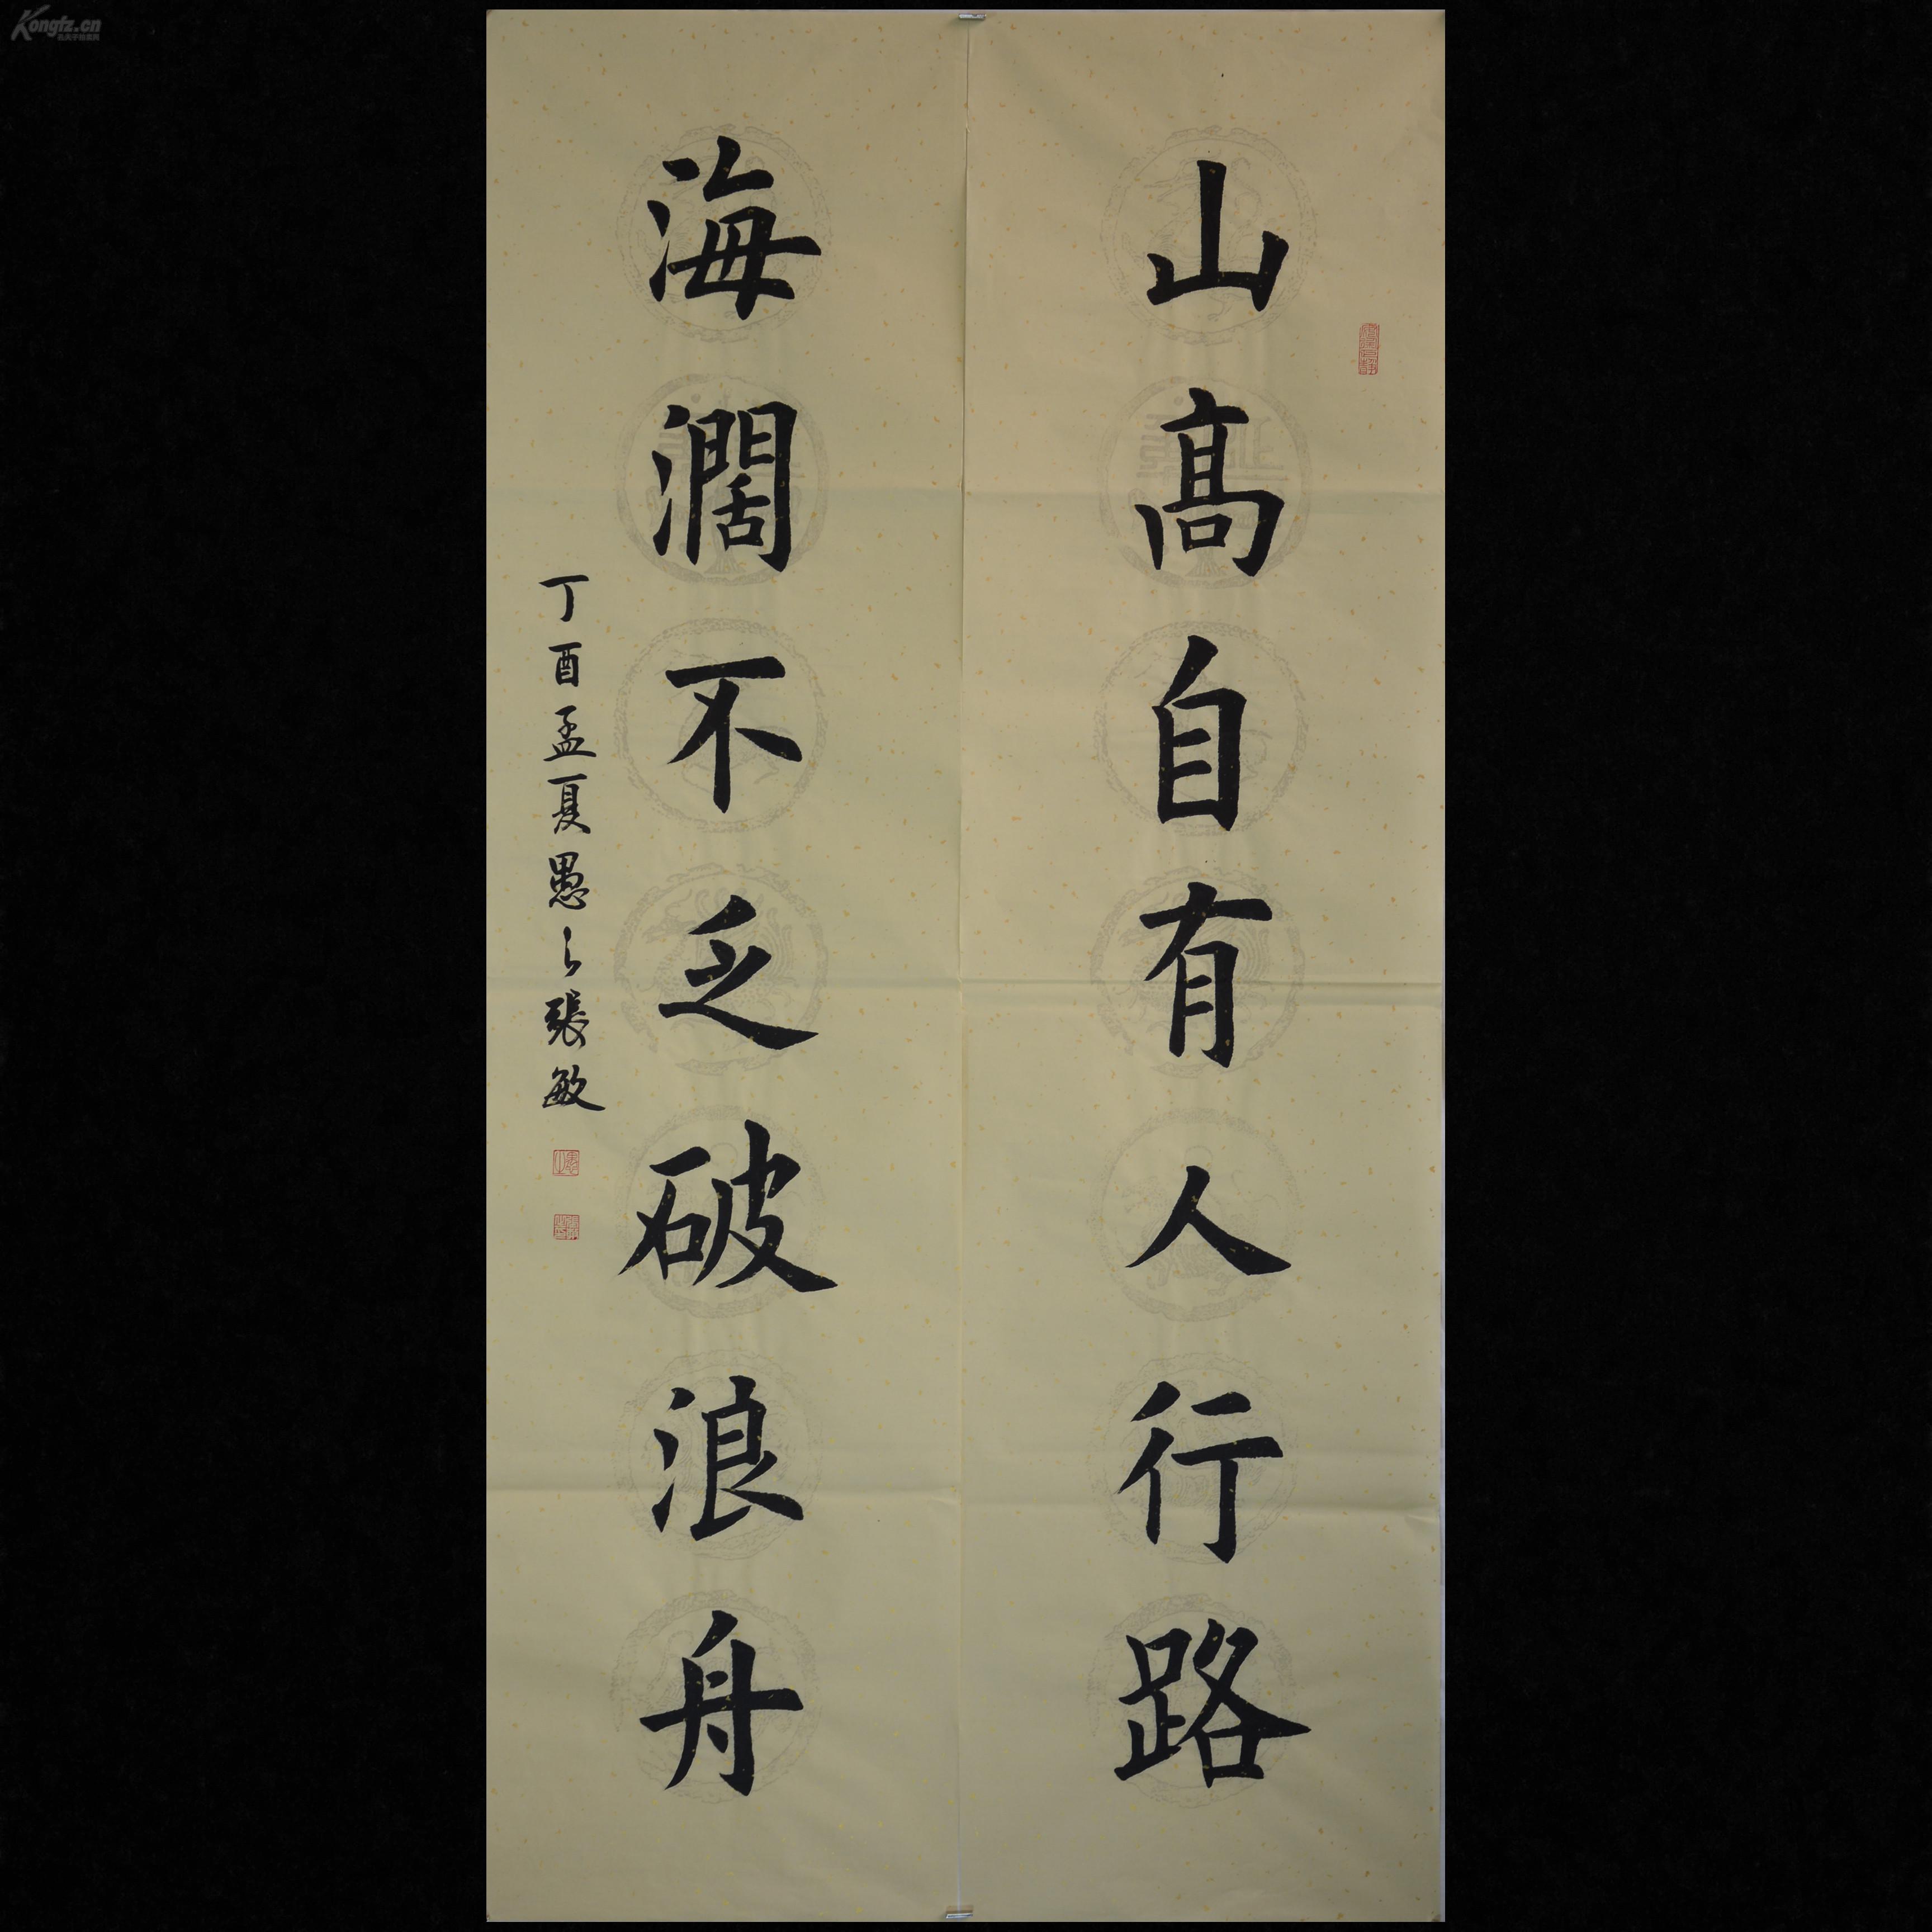 山高自有人行路
海濶不乏破浪舟
丁酉孟夏愚之張敏
Kongfz.cn